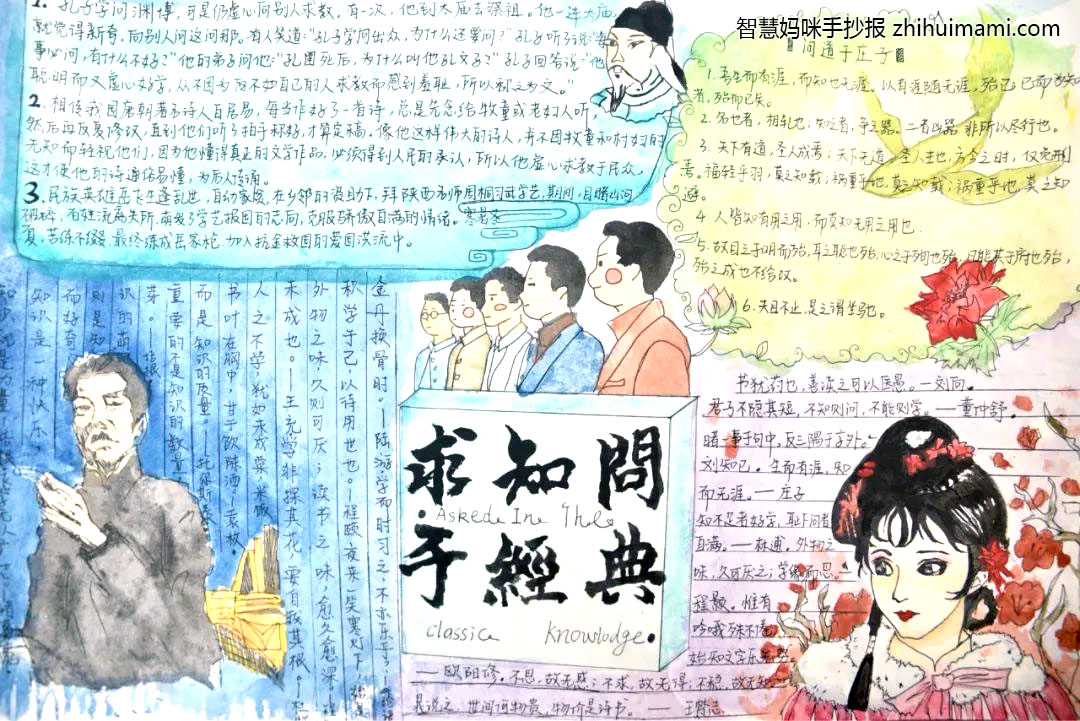 智慧妈咪手抄报 zhihuimami.com
1. 孔子学问渊博，可是仍虚心向别人求教。有一次，他到太庙去祭祖。他一进太庙，
就觉得新奇，向别人问这问那。有人笑道：“孔子学问出众，为什么还要问？”孔子听了说：“每
事必问，有什么不好？”他的弟子问他：“孔圉死后，为什么叫他孔文子？”孔子回答说：“他
聪明而又虚心好学，从不因为反不如自己的人求教而感到羞耻，所以称之为文。”
2. 相传我国唐朝著名诗人白居易，每当作好了一首诗，总是先念给牧童或老妇人听，
然后再反复修改，直到他们听了拍手称好，才算定稿。像他这样伟大的诗人，并不因牧童和村妇的
无知而轻视他们，因为他懂得真正的文学作品，必须得到人民的承认，所以他虚心求教于民众，
这才使他的诗通俗易懂，为后人传诵。
3. 民族英雄岳飞生逢乱世，自幼家贫，在乡邻的资助下，拜陕西名师周桐习武学艺，期间，目睹山河
破碎，百姓流离失所，萌发了学艺报国的志向，克服了骄傲自满的情绪。寒暑冬
夏，苦练不辍，最终练成岳家枪，加入抗金救国的爱国洪流中。
问道于庄子
1. 吾生而有涯，而知也无涯。以有涯随无涯，殆已；已而为知
者，殆而已矣。
2. 名也者，相轧也；知之者，争之器。二者凶器，非所以尽行也。
3. 天下有道，圣人成焉；天下无道，圣人生也，方今之时，仅免刑
焉。福轻乎羽，莫之知载；祸重乎地，莫之知
避。
4 人皆知有用之用，而莫知无用之用也.
5. 故目之于明而殆，耳之聪也殆，心之于殉也殆，凡能其于府也殆，
殆之成也不给改。
6. 夫且不止，是之谓坐驰。
金丹换骨时。—陆游学而时习之，不亦乐乎？—
积学于己，以待用世也。—程颐夜来一笑寒灯下，
外物之味，久则可厌；读书之味，愈久愈深。—程
未成也。—王充学非探其花，要自拔其根。—杜
人之不学，犹如未成粟，米做
书叶在胸中，甘于饮陈酒。—袁枚。
而是知识的质量。—托尔斯
重要的不是知识的数量
芽。—培根
识的萌
则是知
而好奇
知识是一种快乐
問
知
求
典
經
于
Askede Ine The
classice Knowlodge.
书犹药也，善读之可以医愚。—刘向。
君子不隐其短，不知则问，不能则学。—董仲舒。
睹一事于句中，反三隅于字外。—
刘知己。生而有涯，知
而无涯。—庄子
知不足者好学，耻下问者
自满。—林逋。外物之
味，久可厌之；学
程颢。惟有
吟哦殊不倦
始知文字乐无
—欧阳修。不思，故无惑；不求，故无得；不
是说之，世间何物贵，物价是诗书。—